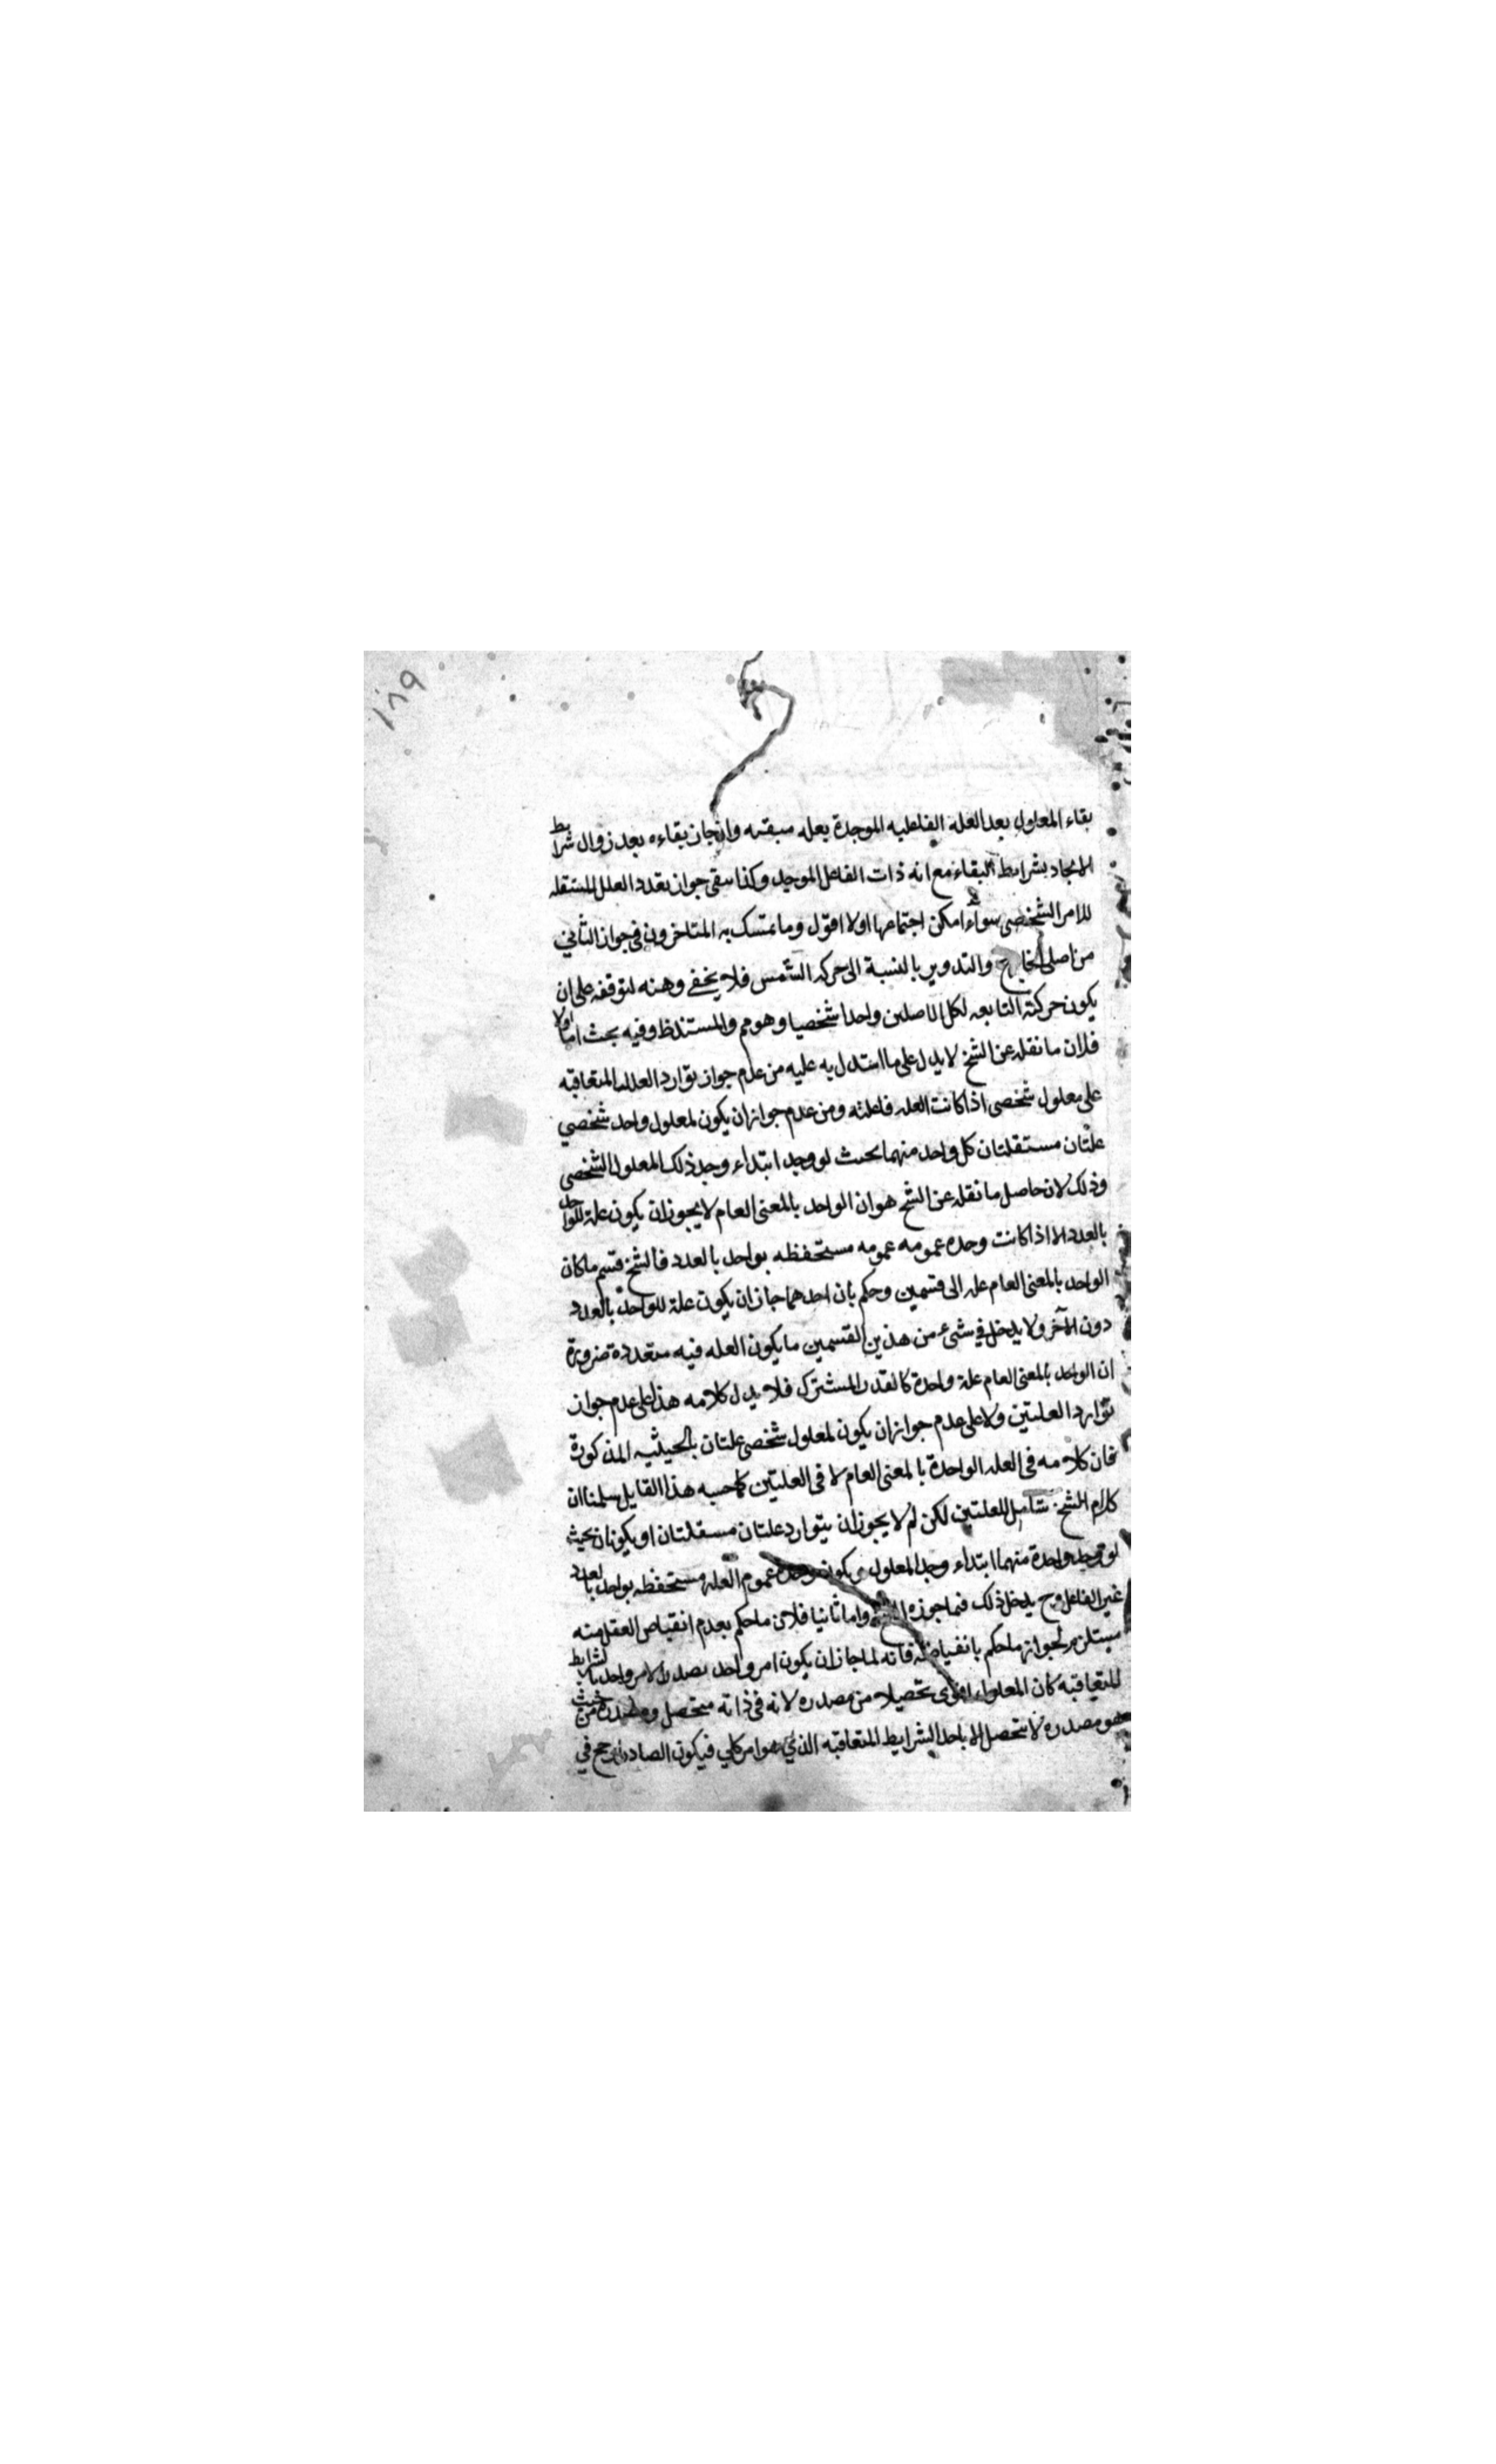 ١٨٩
بقاء المعلول بعد العله الفاعليه الموجدة بعله مبقيه وان جاز بقاءه بعد زوال شرايط
الايجاد بشرايط البقاء مع انه ذات الفاعل الموجد وكذا بقى جواز تعدد العلل المستقله
للامر الشخصى سواء امكن اجتماعها اولا اقول وما تمسك به المتاخرون فى جواز الثانى
من اصلى الخارج والتدوير بالنسبة الى حركه الشمس فلا يخفى وهنه لتوقفه على ان
يكون حركته التابعه لكل الاصلين واحدا شخصيا وهو مم والمستند ظ وفيه بحث اما اولا
فلان ما نقله عن الشيخ لا يدل على ما استدل به عليه من عدم جواز توارد العلل المتعاقبه
على معلول شخصى اذا كانت العله فاعليه ومن عدم جواز ان يكون لمعلول واحد شخصي
علتان مستقلتان كل واحد منهما بحيث لو وجد ابتداء وجد ذلك المعلول الشخصى
وذلك لان حاصل ما نقله عن الشيخ هو ان الواحد بالمعنى العام لا يجوز ان يكون علة للواحد
بالعدد الا اذا كانت وحده عمومه عمومه مستحفظه بواحد بالعدد فالشيخ قسم ما كان
الواحد بالمعنى العام عله الى قسمين وحكم بان احدهما جاز ان يكون علة للواحد بالعدد
دون الآخر ولا يدخل في شىء من هذين القسمين ما يكون العله فيه متعددة ضرورة
ان الواحد بالمعنى العام علة واحدة كالقدر المشترك فلا يدل كلامه هذا على عدم جواز
توارد العلتين ولا على عدم جواز ان يكون لمعلول شخصى علتان بالحيثيه المذكورة
فان كلامه فى العله الواحدة بالمعنى العام لا فى العلتين كما حسبه هذا القايل سلمنا ان
كلام الشيخ شامل للعلتين لكن لم لا يجوز ان يتوارد علتان مستقلتان او يكونان بحيث
لو وجد واحدة منهما ابتداء وجد المعلول ويكون وحدة عموم العله مستحفظه بواحد بالعدد
غير الفاعل وح يدخل ذلك فيما جوزه الشيخ واما ثانيا فلان ما حكم بعدم انقباض العقل منه
مستلزم لجواز ما حكم بانقباضه فانه لما جاز ان يكون امر واحد مصدرا لامر واحد بالشرايط
المتعاقبه كان المعلول اقوى تحصيلا من مصدره لانه فى ذاته متحصل ومصدره من حيث
هو مصدره لا يتحصل الا باحد الشرايط المتعاقبه الذي هو امر كلي فيكون الصادر ارجح في